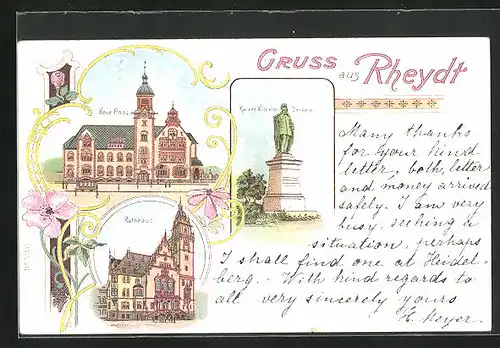 GRUSS aus Rheydt
Neue Post
Kaiser Wilhelm Denkmal
Rathhaus
Many thanks
for your kind
letter, both, letter
and money arrived
safely. I am very
busy, seeking a
situation, perhaps
I shall find one at Heidel-
berg. - With kind regards to
all very sincerely yours
E. Meyer